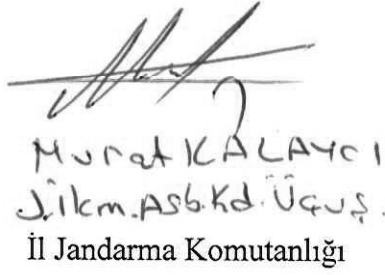 Murat KALAYCI
J.İkm.Asb.Kd.Üçvş.
İl Jandarma Komutanlığı